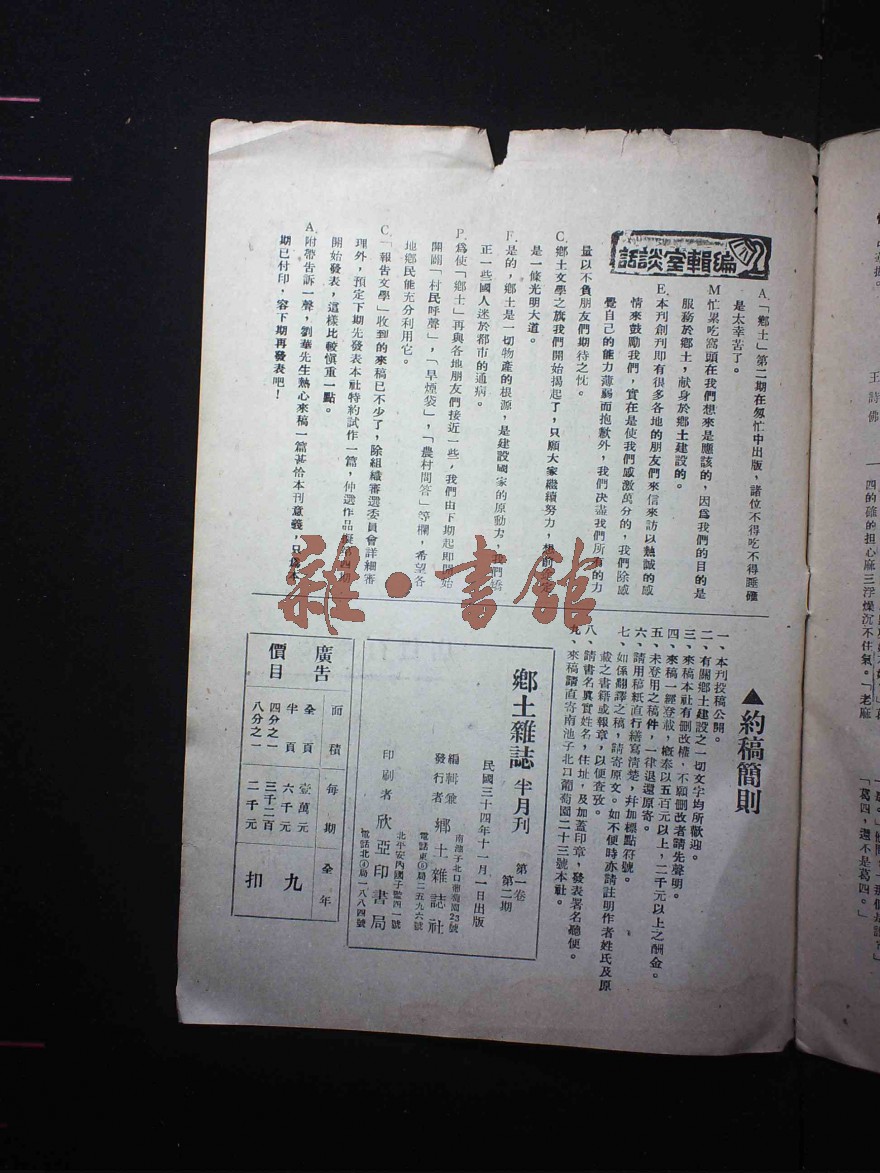 編輯室談話
A.「鄉土」第二期在匆忙中出版，諸位不得吃不得睡確
是太幸苦了。
M.忙累吃窩頭在我們想來是應該的，因爲我們的目的是
服務於鄉土，献身於鄉土建設的。
E.本刊創刊即有很多各地的朋友們來信來訪以熱誠的感
情來鼓勵我們，實在是使我們感激萬分的，我們除感
覺自己的能力薄弱而抱歉外，我們決盡我們所有的力
量以不負朋友們期待之忱。
C.鄉土文學之旗我們開始揭起了，只願大家繼續努力，
是一條光明大道。
F.是的，鄉土是一切物產的根源，是建設國家的原動力，我們矯
正一些國人迷於都市的通病。
P.爲使「鄉土」再與各地朋友們接近一些，我們由下期起即開始
開闢「村民呼聲」，「旱煙袋」，「農村問答」等欄，希望各
地鄉民能充分利用它。
C.「報告文學」收到的來稿已不少了，除組織審選委員會詳細審
理外，預定下期先發表本社特約試作一篇，仲選作品擬第四期
開始發表，這樣比較愼重一點。
A.附帶告訴一聲，劉華先生熱心來稿一篇甚恰本刊意義，只爲本
期已付印，容下期再發表吧！
▲約稿簡則
一、本刊投稿公開。
二、有關鄉土建設之一切文字均所歡迎。
三、來稿本社有刪改權，不願刪改者請先聲明。
四、來稿一經登載，概奉以五百元以上，二千元以上之酬金。
五、未登用之稿件，一律退還原寄。
六、請用稿紙直行繕寫清楚，幷加標點符號。
七、如係翻譯之稿，請寄原文。如不便時亦請註明作者姓氏及原
載之書籍或報章，以便查攷。
八、請書名真實姓名，住址，及加蓋印章，發表署名聽便。
九、來稿請直寄南池子北口葡萄園二十三號本社。
鄉土雜誌 半月刊 第一卷 第二期
民國三十四年十一月一日出版
編輯兼發行者 鄉土雜誌社
南池子北口葡萄園23號
電話東⑤局二五九六號
印刷者 欣亞印書局
北平安內國子監四一號
電話北④局一八八四號
廣告價目
面積 每期 全年
全頁 壹萬元
半頁 六千元
四分之一 三千二百
八分之一 二千元
九扣
雜·書館
王詩佛
四的碓的担心麻三浮燥沉不住氣。「老麻
「葛四，還不是葛四。」